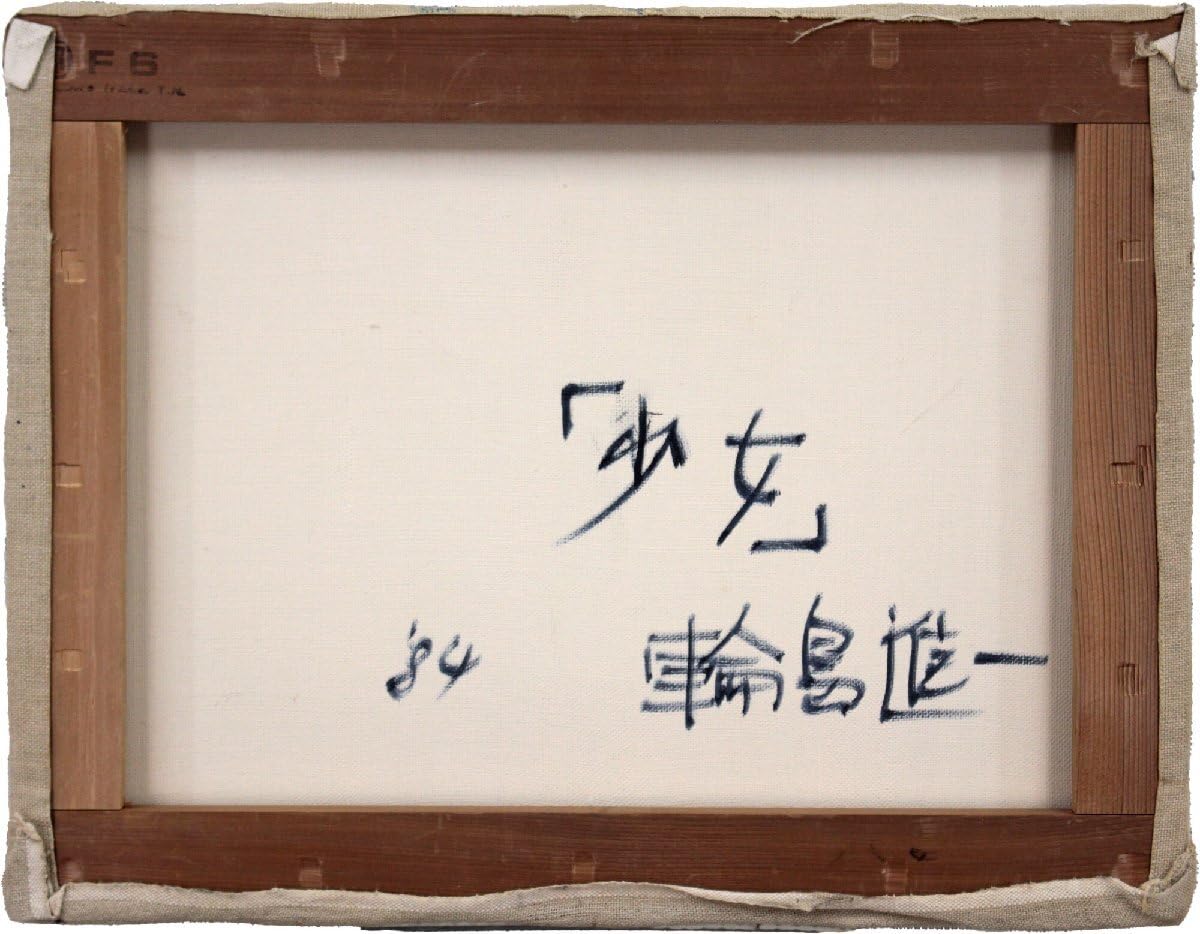 F6
「少女」
'84 輪島進一